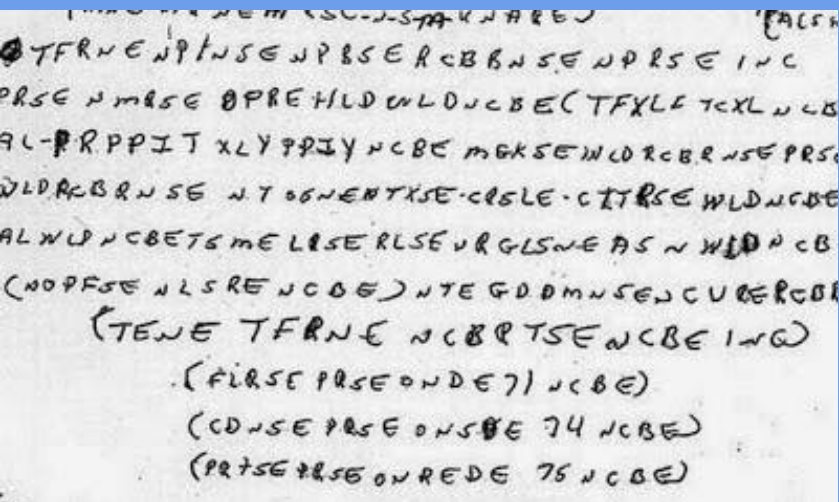 TFRNENPINSENPBSERCBBNSENPRSEINC
PRSENMRSEOPREHLDWLDNCBE(TFXLFTCXLNCB
AL-PRPPITXLYPPIYNCBEMGKSEWCDRCBRNSEPRSE
WLDRCBRNSENTOGNENTXSE-CRSLE-CITRSEWLDNCBE
ALWLPNCBETSMELRSERLSEURGLSNEASNWLDNCB
(NOPFSENLSRENCBE)NTEGDDMNSENCUREREBR
(TENETFRNENCBRTSENCBEING)
(FLRSEPRSEONDE71NCBE)
(CDNSEPRSEONSDE74NCBE)
(PRTSEPRSEONREDE75NCBE)